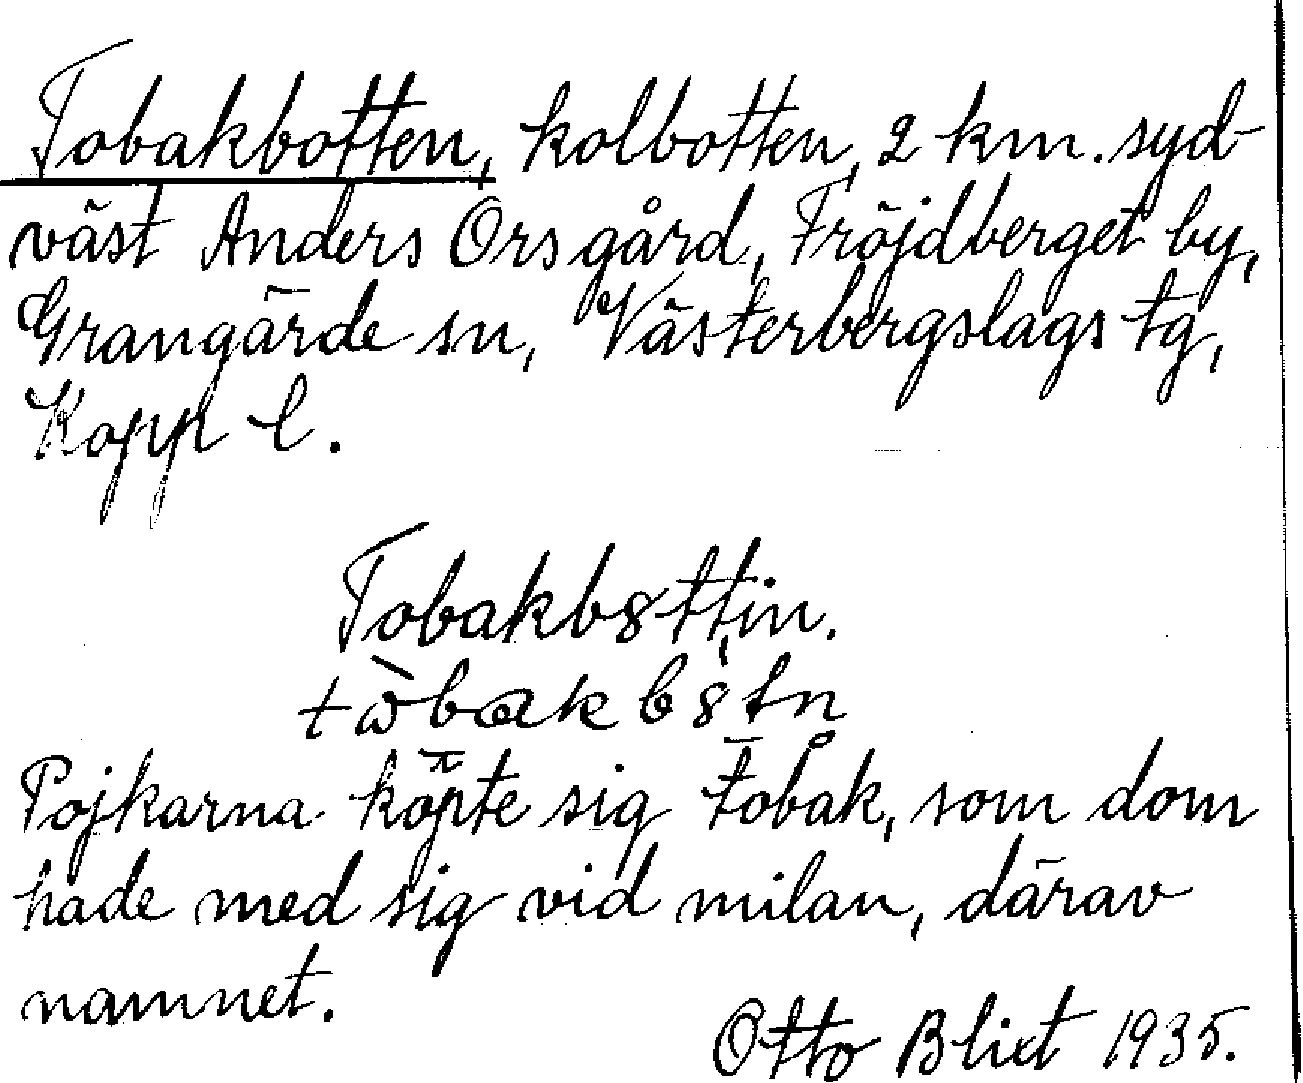 Tobakbotten, kolbotten, 2 km. syd-
väst Anders Orsgård, Fröjdberget by,
Grangärde sn, Västerbergslags tg,
Kopp l.
Tobakb8ttin.
tὼbakb8tn̥
Pojkarna köpte sig tobak, som dom
hade med sig vid milan, därav
namnet.
Otto Blixt 1935.